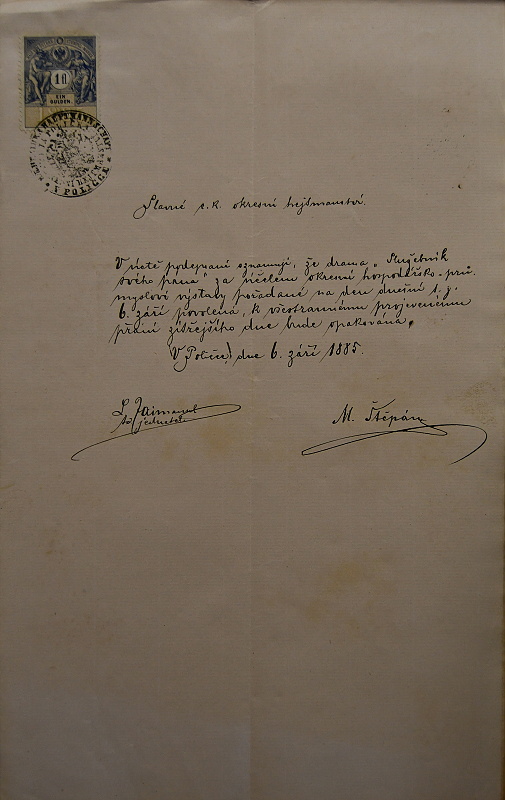 1 fl
EIN
GULDEN.
Slavné c. k. okresní hejtmanství.
V úctě podepsaní oznamují, že drama „Služebník
svého pána“ za účelem okresní hospodářsko-prů-
myslové výstavy pořádané na den dnešní t. j.
6. září povolená, k všestrannému projevenému
přání zítřejšího dne bude opakována.
V Poličce, dne 6. září 1885.
L. Jaimanek
M. Štěpán
jednatel.